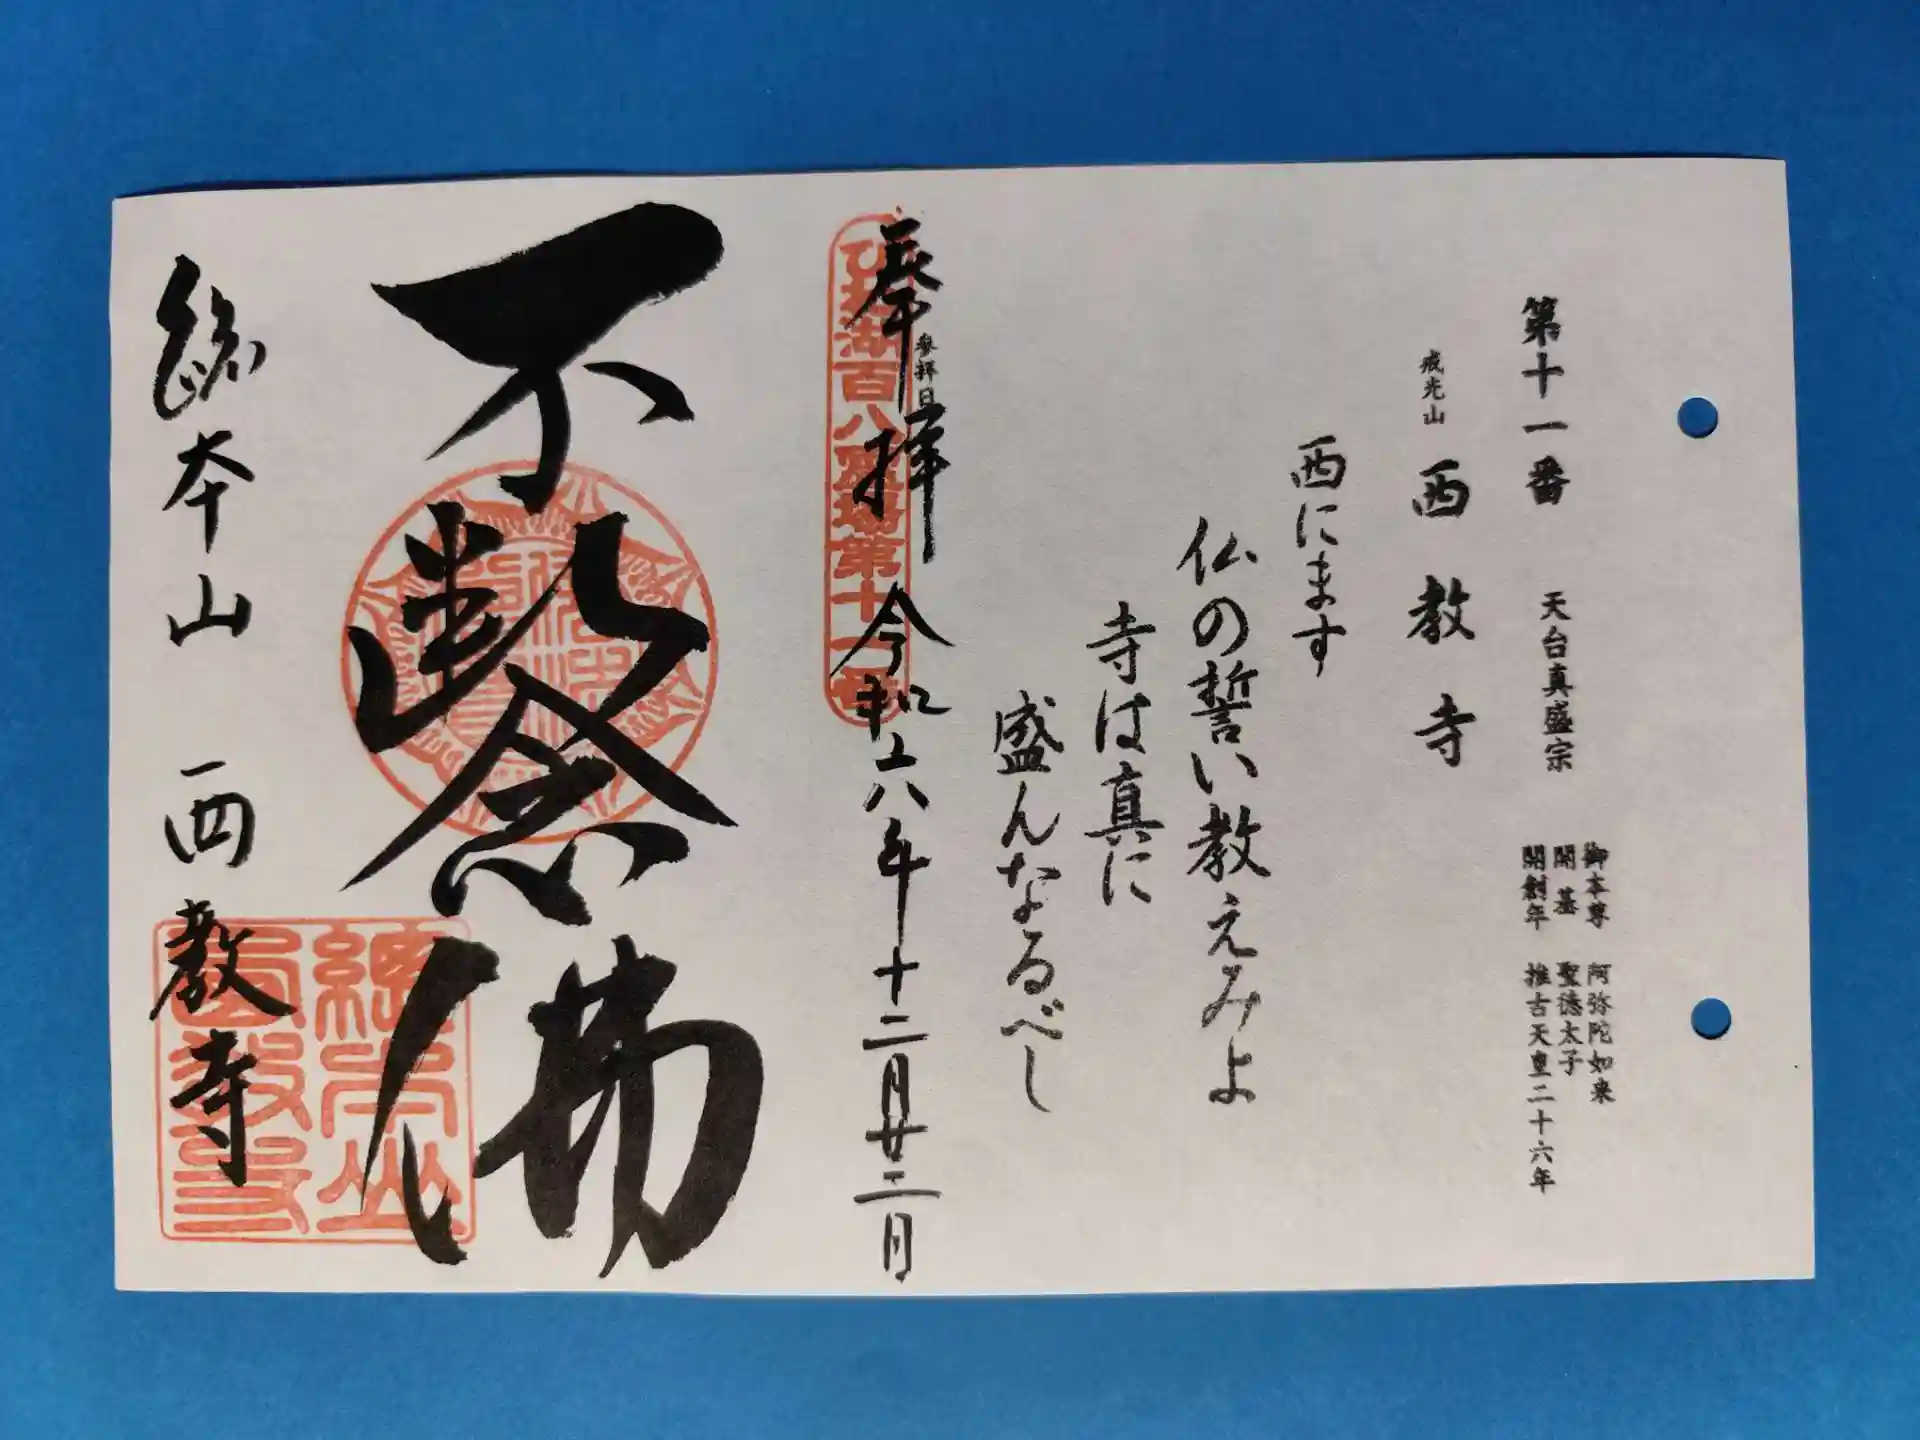 第十一番 天台真盛宗
御本尊 阿弥陀如来
開基 聖徳太子
開創年 推古天皇二十六年
戒光山 西教寺
西にます
仏の誓い教えみよ
寺は真に
盛んなるべし
参拝日
奉拝 令和六年十二月廿二日
びわ湖百八霊場第十一番
不断念佛
総本山 西教寺
総本山西教寺